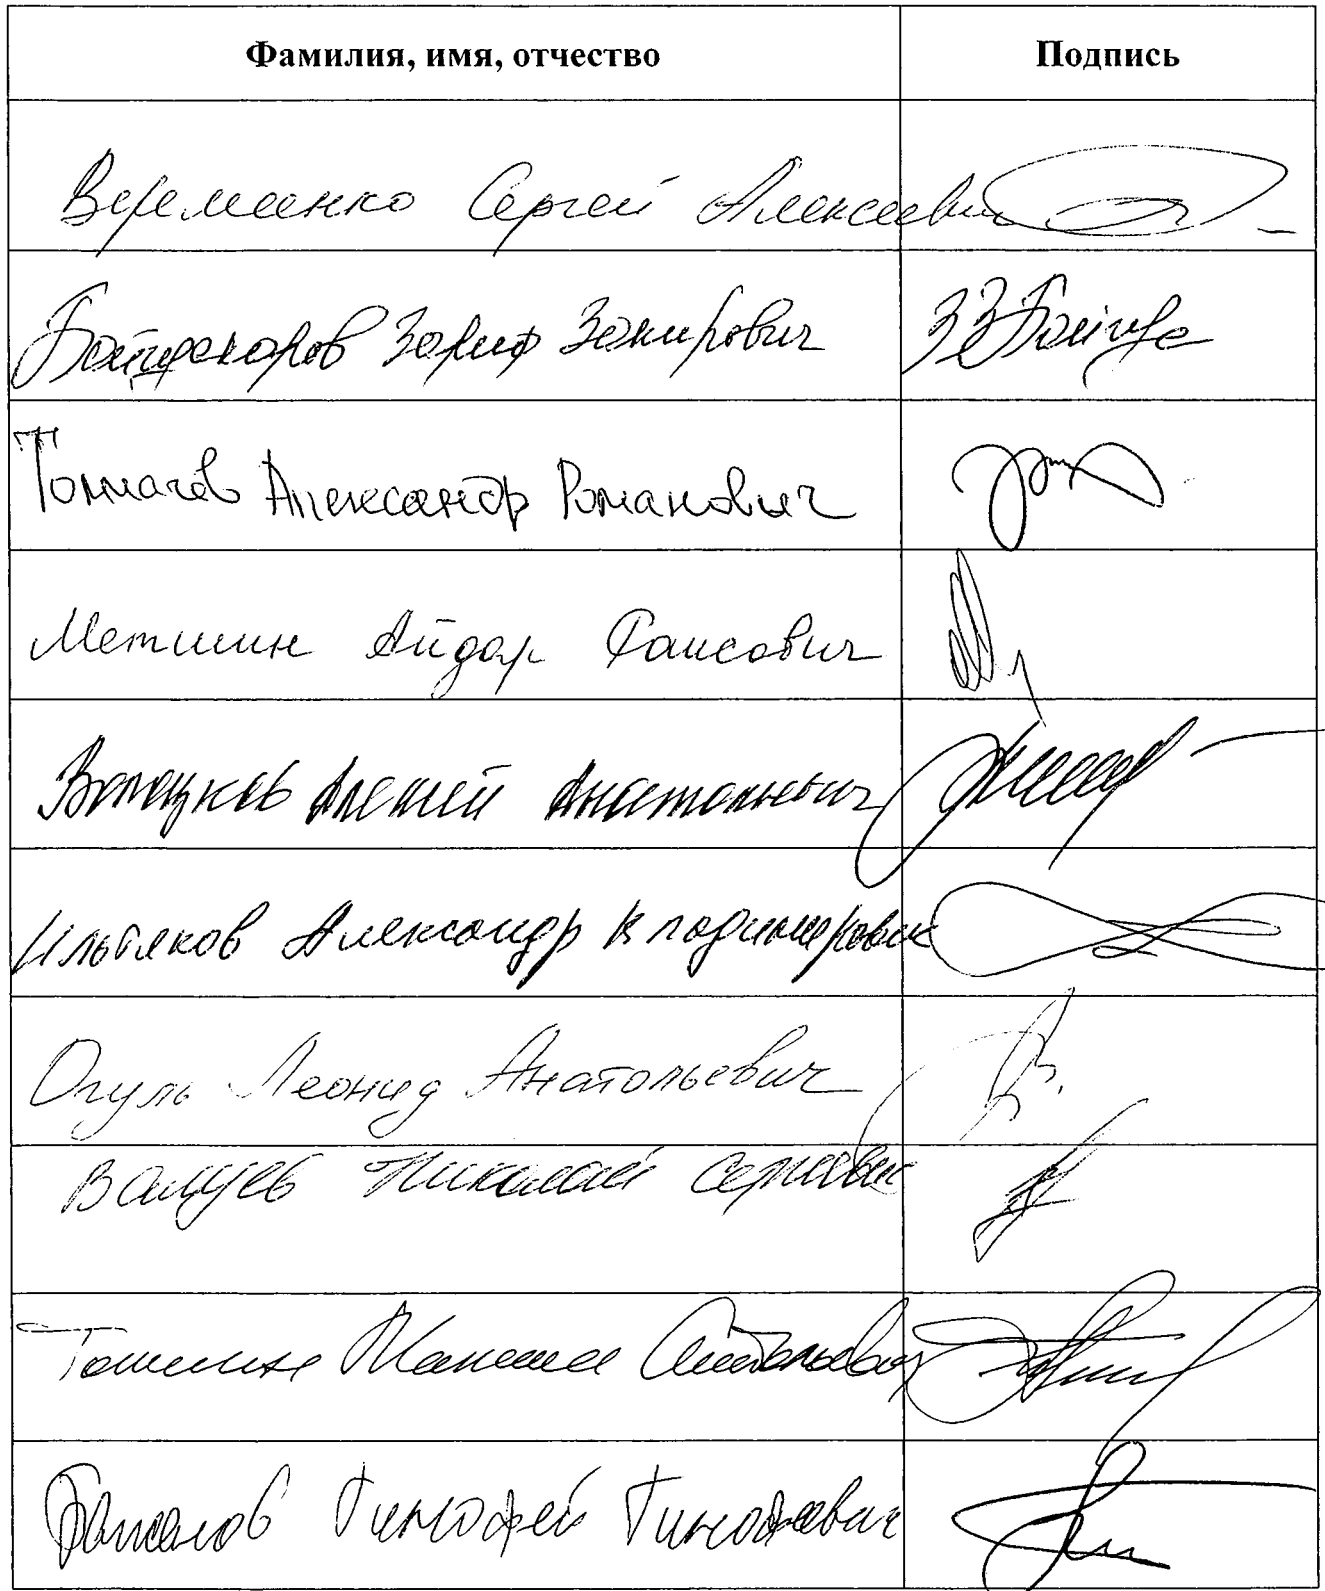 Фамилия, имя, отчество Подпись
Веремеенко Сергей Алексеевич
Байгускаров Зариф Закирович
Толмачев Александр Романович
Метшин Айдар Раисович
Волоцков Алексей Анатольевич
Ильтяков Александр Владимирович
Огуль Леонид Анатольевич
Валуев Николай Сергеевич
Анатольевич
Баженов Тимофей Тимофеевич